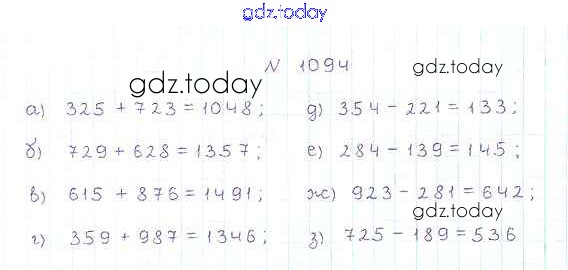 gdz.today
N 1094
gdz.today
gdz.today
а) 325 + 723 = 1048;
д) 354 - 221 = 133;
б) 729 + 628 = 1357;
е) 284 - 139 = 145;
в) 615 + 876 = 1491;
ж) 923 - 281 = 642;
gdz.today
г) 359 + 987 = 1346;
з) 725 - 189 = 536